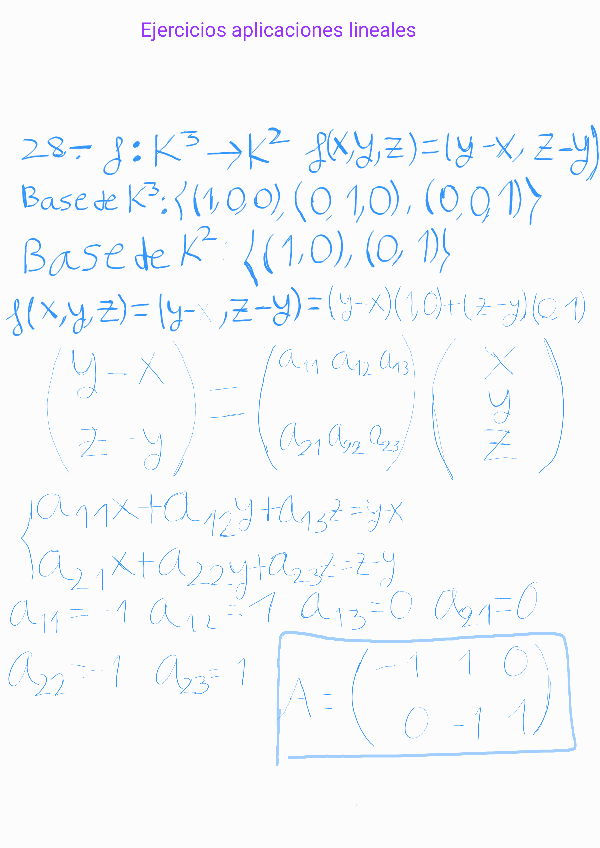 Ejercicios aplicaciones lineales
28.- f: K³ → K² f(x,y,z)=(y-x, z-y)
Base de K³: {(1,0,0), (0,1,0), (0,0,1)}
Base de K²: {(1,0), (0,1)}
f(x,y,z)=(y-x, z-y)=(y-x)(1,0)+(z-y)(0,1)
(y-x) = (a₁₁ a₁₂ a₁₃) (x
y
z-y a₂₁ a₂₂ a₂₃ z)
{a₁₁x+a₁₂y+a₁₃z=y-x
a₂₁x+a₂₂y+a₂₃z=z-y
a₁₁=-1 a₁₂=1 a₁₃=0 a₂₁=0
a₂₂=-1 a₂₃=1
A= (-1 1 0
0 -1 1)